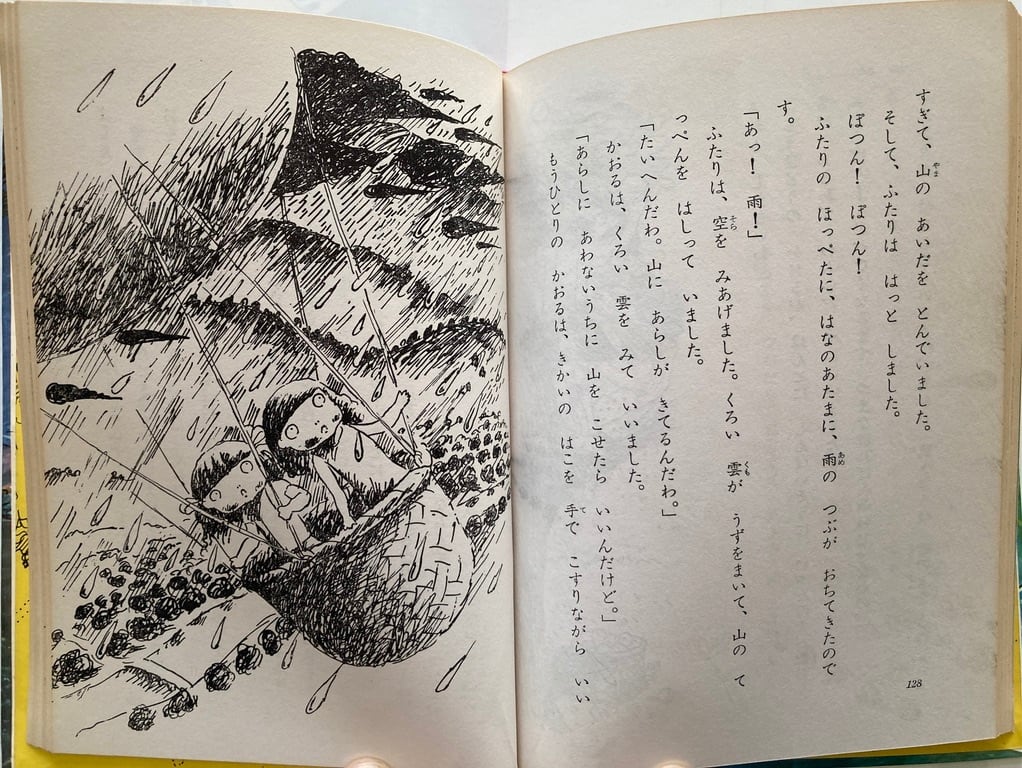 すぎて、山の　あいだを　とんでいました。
そして、ふたりは　はっと　しました。
ぽつん！　ぽつん！
ふたりの　ほっぺたに、はなのあたまに、雨の　つぶが　おちてきたので
す。
「あっ！　雨！」
ふたりは、空を　みあげました。くろい　雲が　うずをまいて、山の　て
っぺんを　はしって　いました。
「たいへんだわ。山に　あらしが　きてるんだわ。」
かおるは、くろい　雲を　みて　いいました。
「あらしに　あわないうちに　山を　こせたら　いいんだけど。」
もうひとりの　かおるは、きかいの　はこを　手で　こすりながら　いい
128